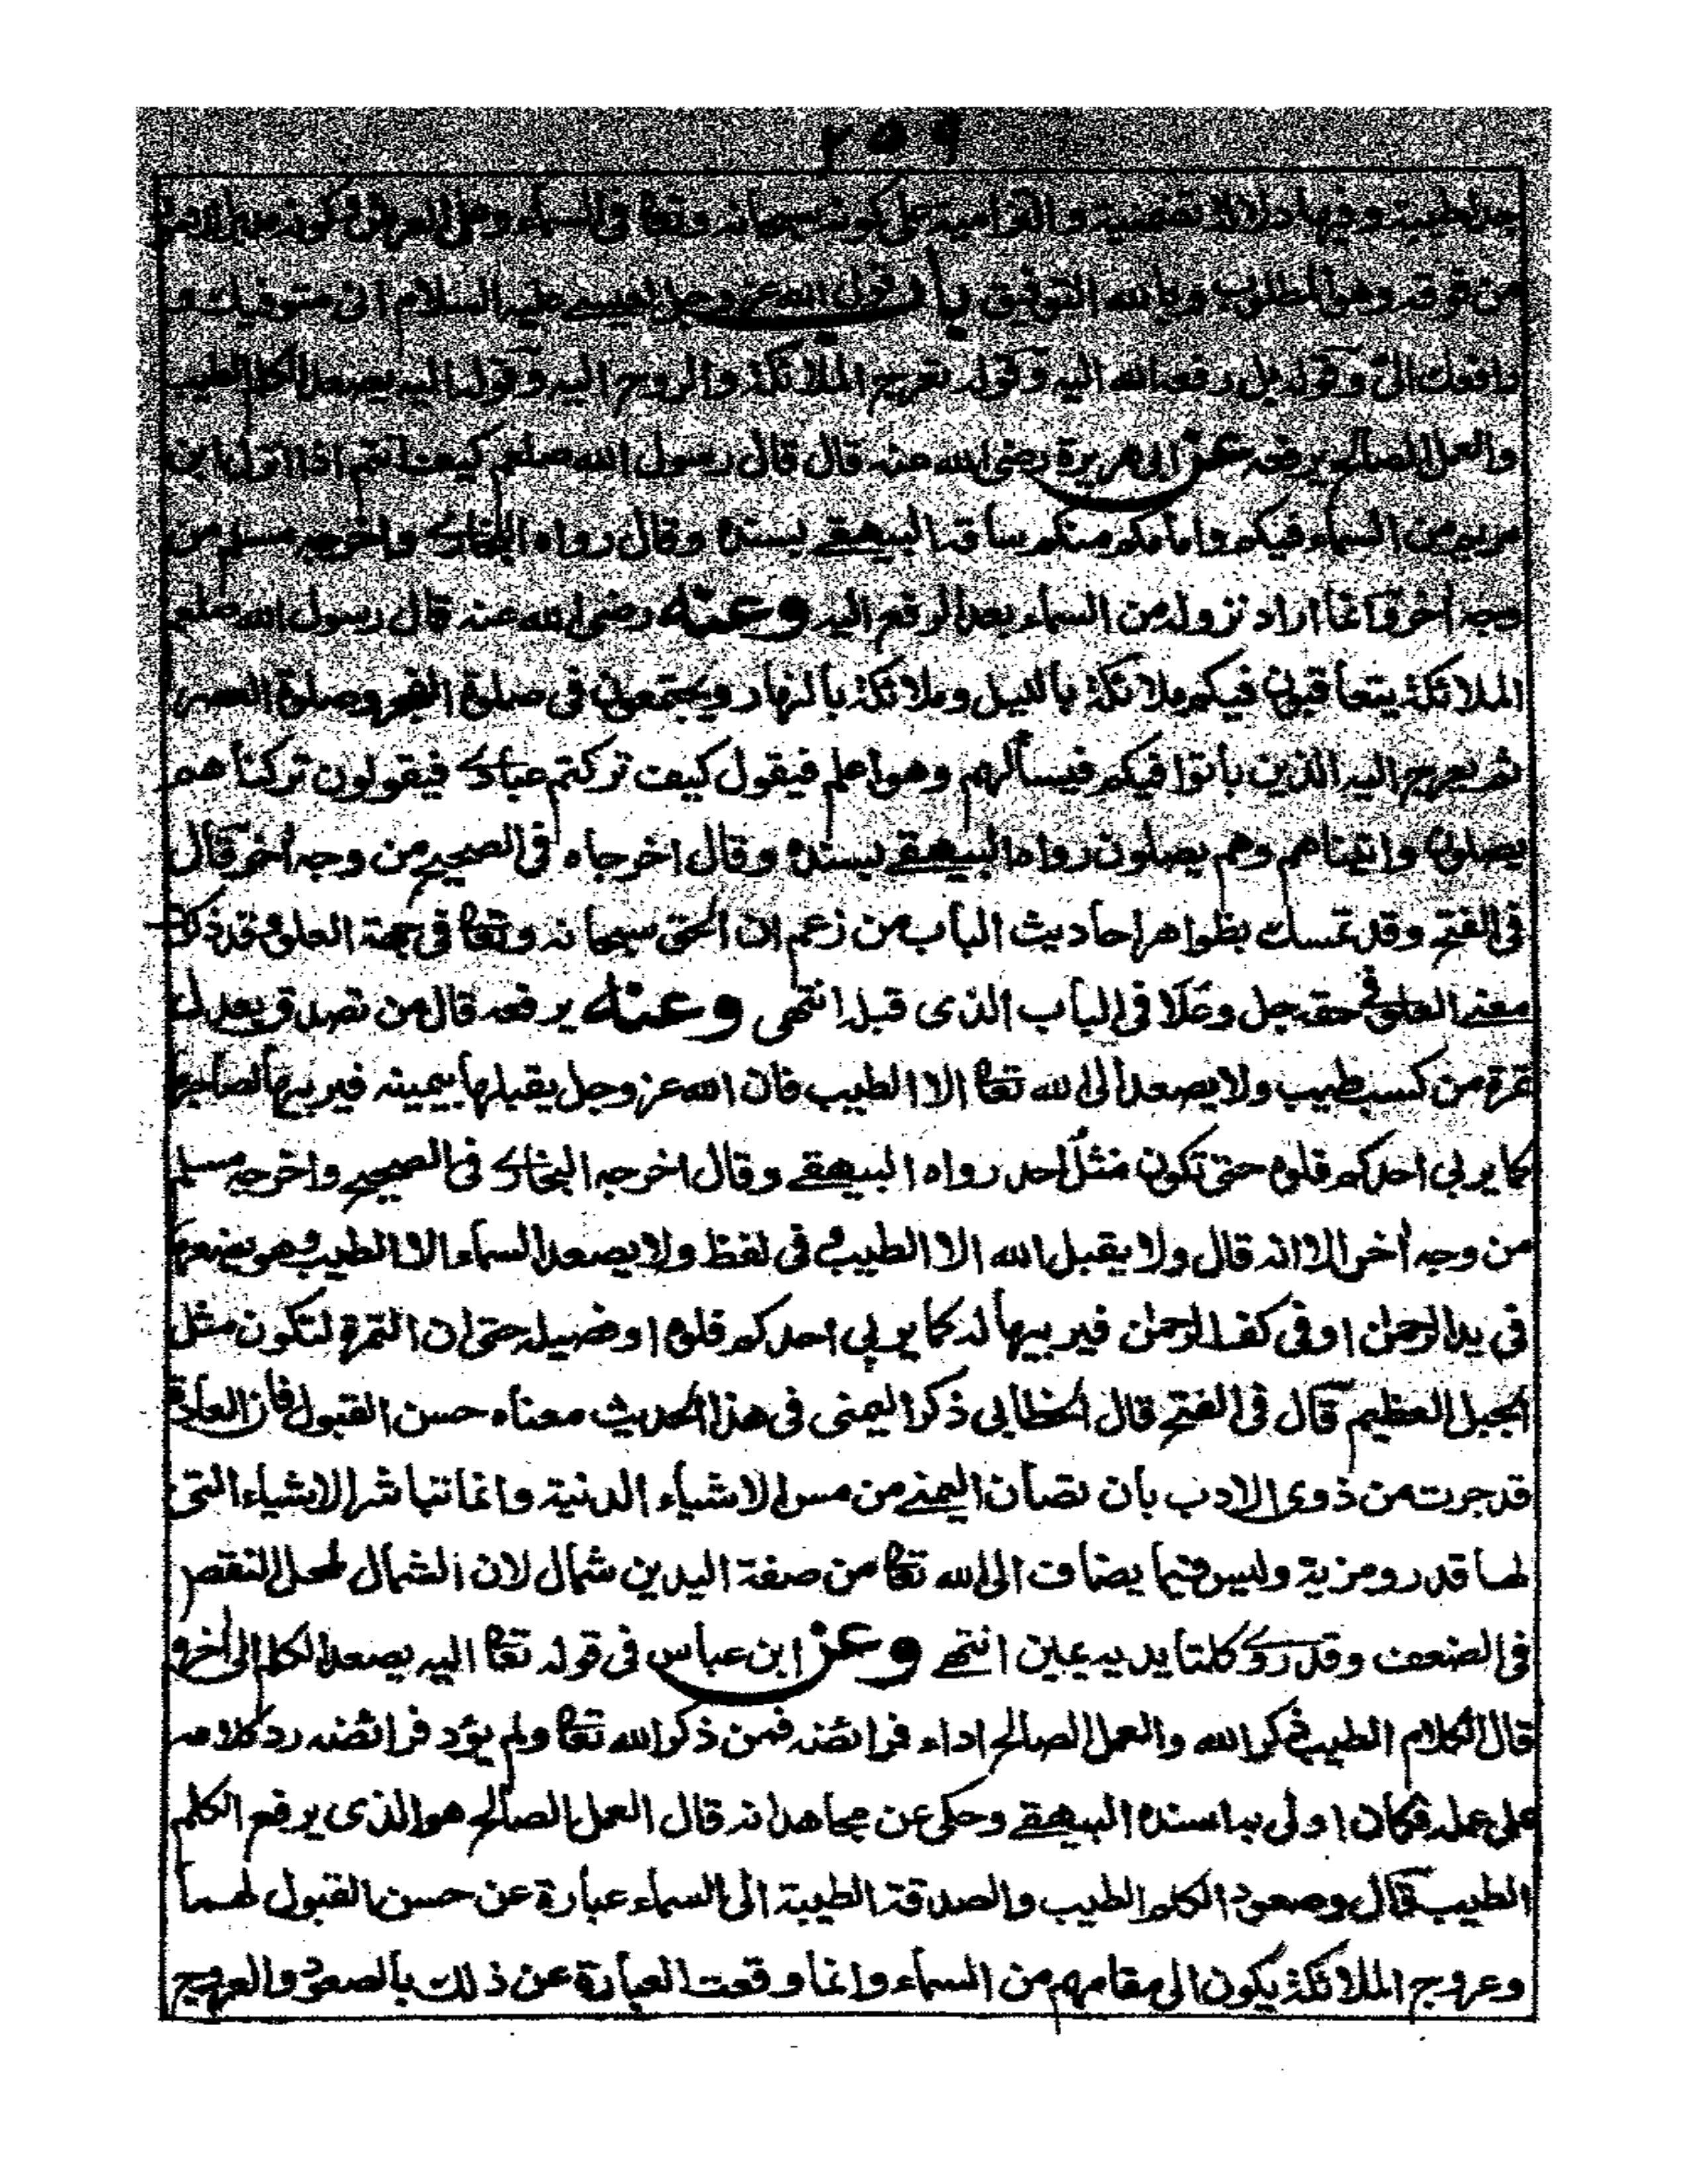 ٢٥٩
طيبة وفيها دلالة تضمنية والتزامية على كونه سبحانه وتعا فى السماء وعلى العرش
من فوقه وهو المطلوب وبالله التوفيق باب قول الله عز وجل لعيسے عليه السلام انى متوفيك و
رافعك الىّ وقوله بل رفعه الله اليه وقوله تعرج الملائكة والروح اليه وقوله اليه يصعد الكلم الطيب
والعمل الصالح يرفعه عن ابى هريرة رضى الله عنه قال قال رسول الله صلعم كيف انتم اذا انزل ابن
مريم من السماء فيكم وامامكم منكم ساقه البيهقے بسنده وقال رواه البخارى واخرجه مسلم من
وجه أخر وانما اراد نزوله من السماء بعد الرفع اليه وعنه رضى الله عنه قال رسول الله صلعم
الملائكة يتعاقبون فيكم ملائكة بالليل وملائكة بالنهار ويجتمعون فى صلوة الفجر وصلوة العصر
ثم يعرج اليه الذين باتوا فيكم فيسألهم وهو اعلم فيقول كيف تركتم عبادى فيقولون تركناهم
يصلون واتيناهم وهم يصلون رواه البيهقے بسنده وقال اخرجاه فى الصحيح من وجه أخر قال
فى الفتح وقد تمسك بظواهر احاديث الباب من زعم ان الحق سبحانه وتعا فى جهة العلو وقد ذكرت
معنے العلو فى حقه جل وعلا فى الباب الذى قبله انتهى وعنه يرفعه قال من تصدق بعدل
تمرة من كسب طيب ولا يصعد الى الله تعا الا الطيب فان الله عز وجل يقبلها بيمينه فيربيها لصاحبها
كما يربى احدكم فلوه حتى تكون مثل احد رواه البيهقے وقال اخرجه البخارى فى الصحيح واخرجه مسلم
من وجه أخر الا انه قال ولا يقبل الله الا الطيب وفى لفظ ولا يصعد السماء الا الطيب وهو يضعها
فى يد الرحمن او فى كف الرحمن فيربيها له كما يربى احدكم فلوه او فصيله حتى ان التمرة لتكون مثل
الجبل العظيم قال فى الفتح قال الخطابى ذكر اليمنى فى هذا الحديث معناه حسن القبول فان العادة
قد جرت من ذوى الادب بان تصان اليمنے من مس الاشياء الدنية وانما تباشر الاشياء التى
لها قدر ومزية وليس فيما يضاف الى الله تعا من صفة اليدين شمال لان الشمال لمحل النقص
فى الضعف وقد روى كلتا يديه يمين انتهے وعن ابن عباس فى قوله تعا اليه يصعد الكلم الى أخره
قال الكلام الطيب ذكر الله والعمل الصالح اداء فرائضه فمن ذكر الله تعا ولم يؤد فرائضه رد كلامه
على عمله فكان اولى به اسنده البيهقے وحكى عن مجاهد انه قال العمل الصالح هو الذى يرفع الكلم
الطيب قال وصعود الكلم الطيب والصدقة الطيبة الى السماء عبارة عن حسن القبول لهما
وعروج الملائكة يكون الى مقامهم من السماء وانما وقعت العبارة عن ذلك بالصعود والعروج